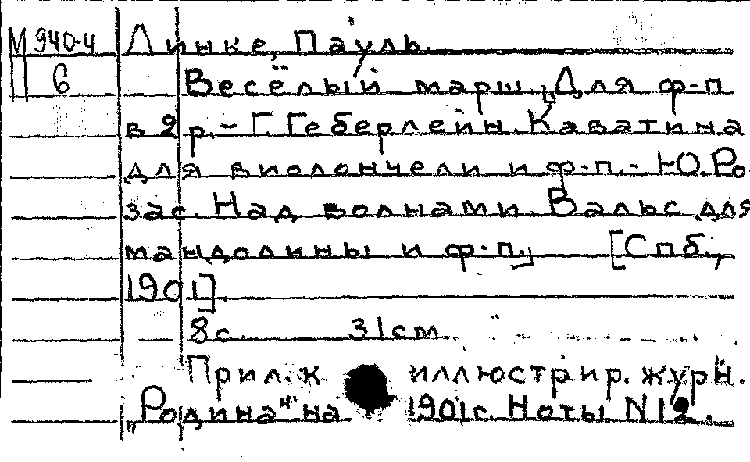 М 940-4 Линке, Пауль.
6 Весёлый марш. Для ф-п
в 2 р. - Г. Геберлейн. Каватина
для виолончели и ф-п. - Ю. Ро
зас. Над волнами. Вальс для
мандолины и ф-п. [Спб.,
1901].
8 с. 31 см
Прил. к иллюстрир. журн.
"Родина" на 1901 г. Ноты N 12.